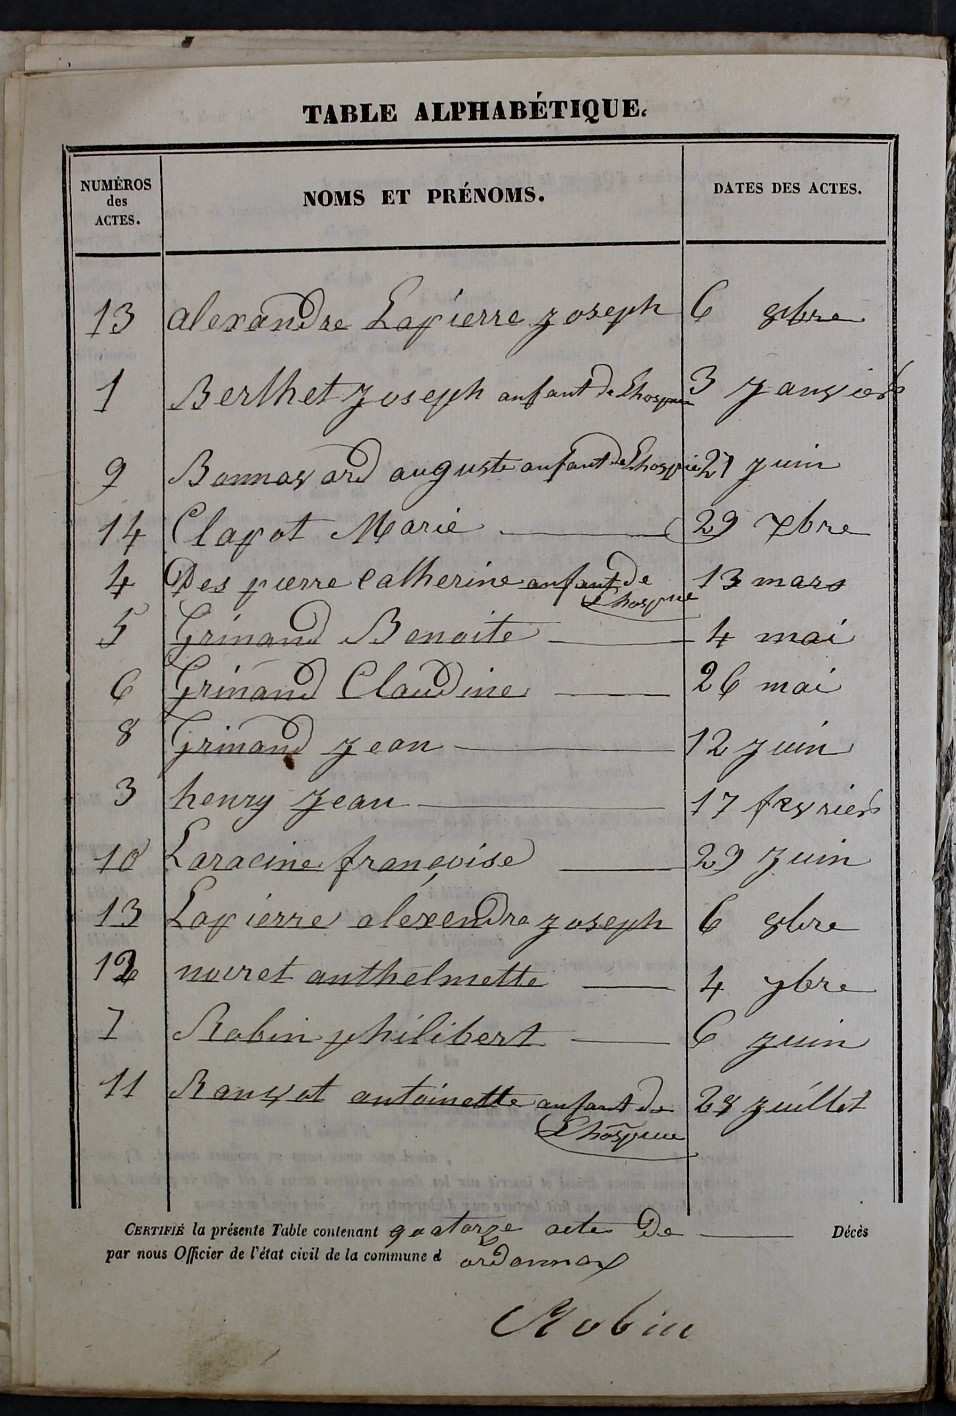 TABLE ALPHABÉTIQUE.
NUMÉROS des ACTES. NOMS ET PRÉNOMS. DATES DES ACTES.
13 alexandre Lapierre joseph 6 8bre
1 Berthet joseph anfant de Lhospice 3 janvier
9 Bonnavard auguste anfant de Lhospice 27 juin
14 Clapot Marie 29 xbre
4 Des pierre Catherine anfant de Lhospice 13 mars
5 Grinand Benoite 4 mai
6 Grinand Claudine 26 mai
8 Grinand jean 12 juin
3 henry jean 17 fevrier
10 Laracine françoise 29 juin
13 Lapierre alexendre joseph 6 8bre
12 noiret anthelmette 4 7bre
7 Robin philibert 6 juin
11 antoinette anfant de Lhospice 28 juillet
CERTIFIÉ la présente Table contenant quatorze acte De Décès
par nous Officier de l'état civil de la commune d ordonnax
Robin